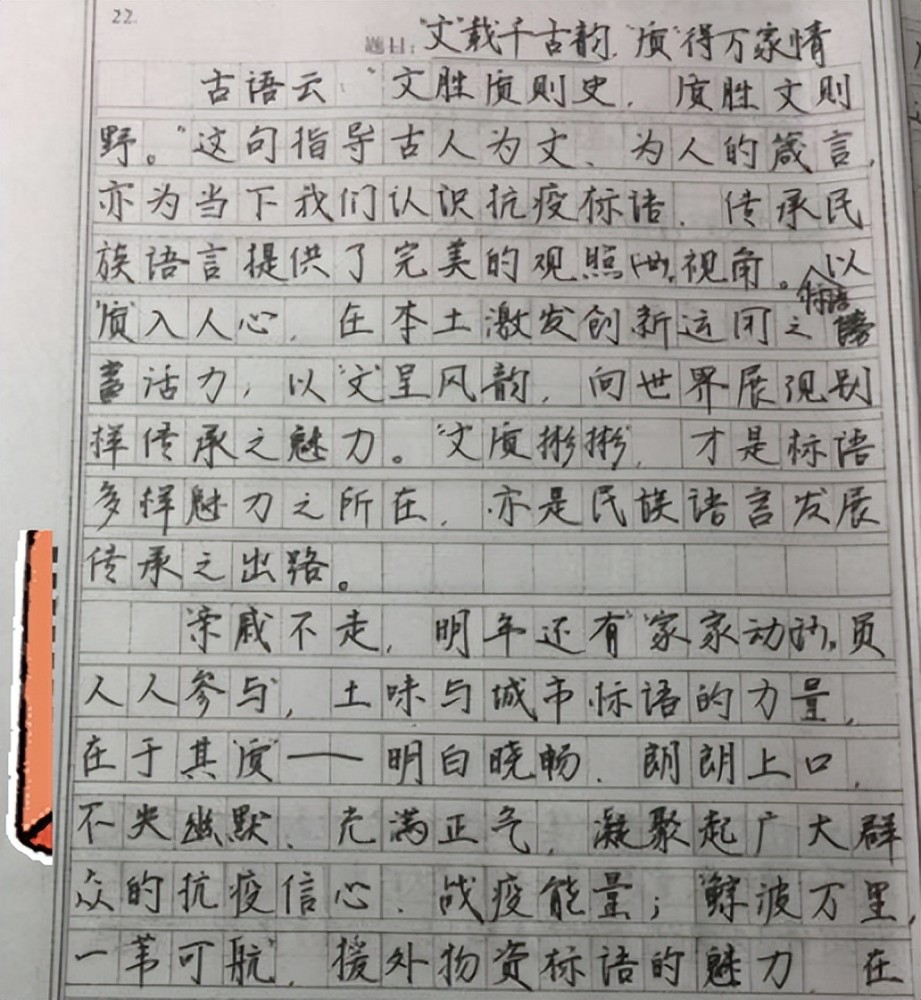 22.
题目："文"载千古韵，"质"得万家情
古语云："文胜质则史，质胜文则
野。"这句指导古人为文、为人的箴言，
亦为当下我们认识抗疫标语、传承民
族语言提供了完美的观照视角。以
"质"入人心，在本土激发创新运用之标语
活力，以"文"呈风韵，向世界展现别
样传承之魅力。"文质彬彬"，才是标语
多样魅力之所在，亦是民族语言发展
传承之出路。
"亲戚不走，明年还有""家家动员，
人人参与"，土味与城市标语的力量，
在于其"质"——明白晓畅、朗朗上口，
不失幽默、充满正气，凝聚起广大群
众的抗疫信心、战疫能量；"鲸波万里，
一苇可航"，援外物资标语的魅力，在